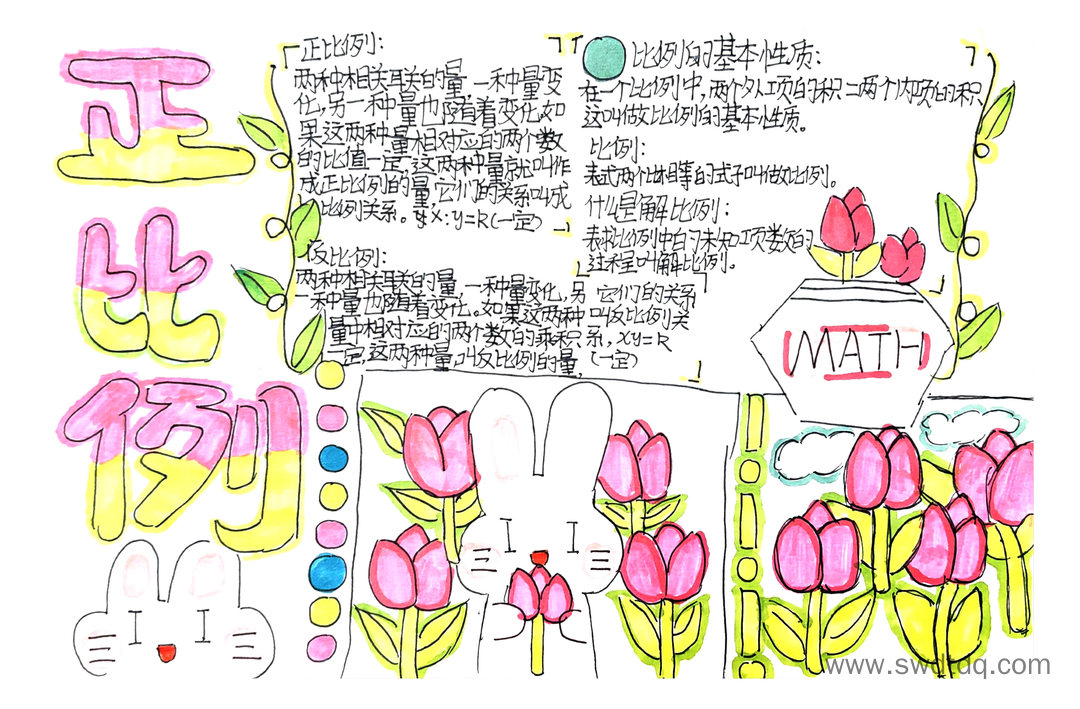 正比例
正比例:
两种相关联的量,一种量变
化,另一种量也随着变化,如
果这两种量相对应的两个数
的比值一定,这两种量就叫作
成正比例的量,它们的关系叫成
比例关系。 X:y=R(一定)
反比例:
两种相关联的量,一种量变化,另
一种量也随着变化。如果这两种
量中相对应的两个数的乘积
一定,这两种量,叫反比例的量,
它们的关系
叫反比例关
系,xy=R
(一定)
比例的基本性质:
在一个比例中,两个外项的积二两个内项的积
这叫做比例的基本性质。
比例:
表式两个比相等的式子叫做比例。
什么是解比例:
求比例中的未知项数的
过程叫解比例。
MATH
www.swdtdq.com